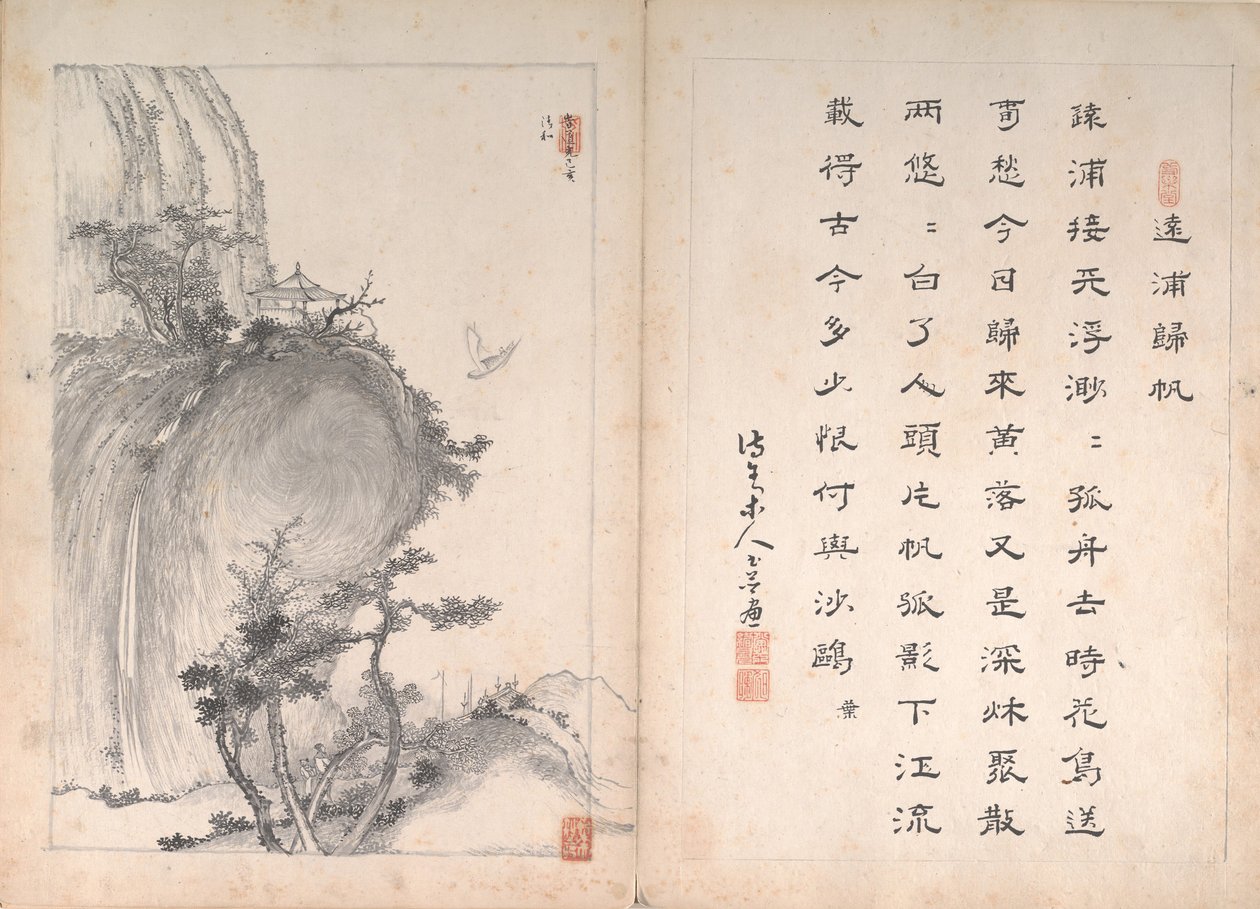 遠浦歸帆
遠浦接天浮渺〻孤舟去時花鳥送
旾愁今日歸來黃落又是深秌聚散
两悠〻白了人頭片帆孤影下江流
載得古今多少恨何與沙鷗 葉
木人書並畫
峕道光己亥
清和